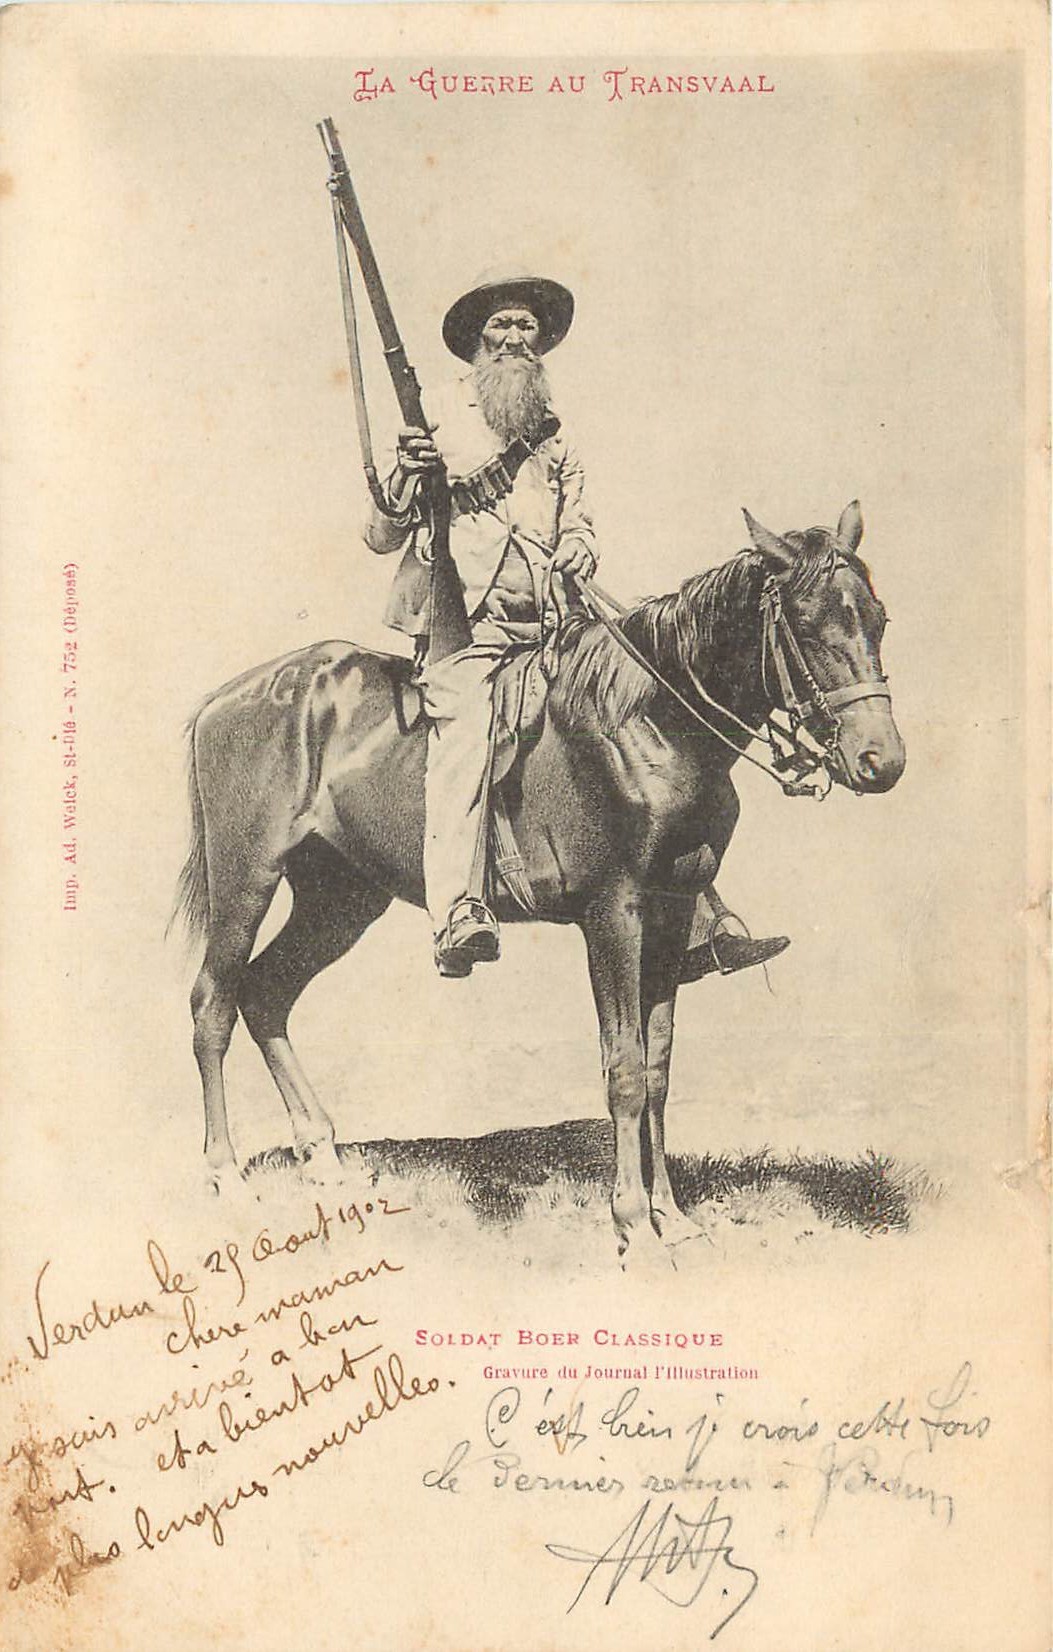 La Guerre au Transvaal
Imp. Ad. Weick, St-Dié - N. 752 (Déposé)
Soldat Boer Classique
Gravure du Journal l'Illustration
Verdun le 25 Aout 1902
chere maman
je suis arrivé a bon
port. et a bientot
de plus longues nouvelles.
C'est bien je crois cette fois
le Dernier à Verdun